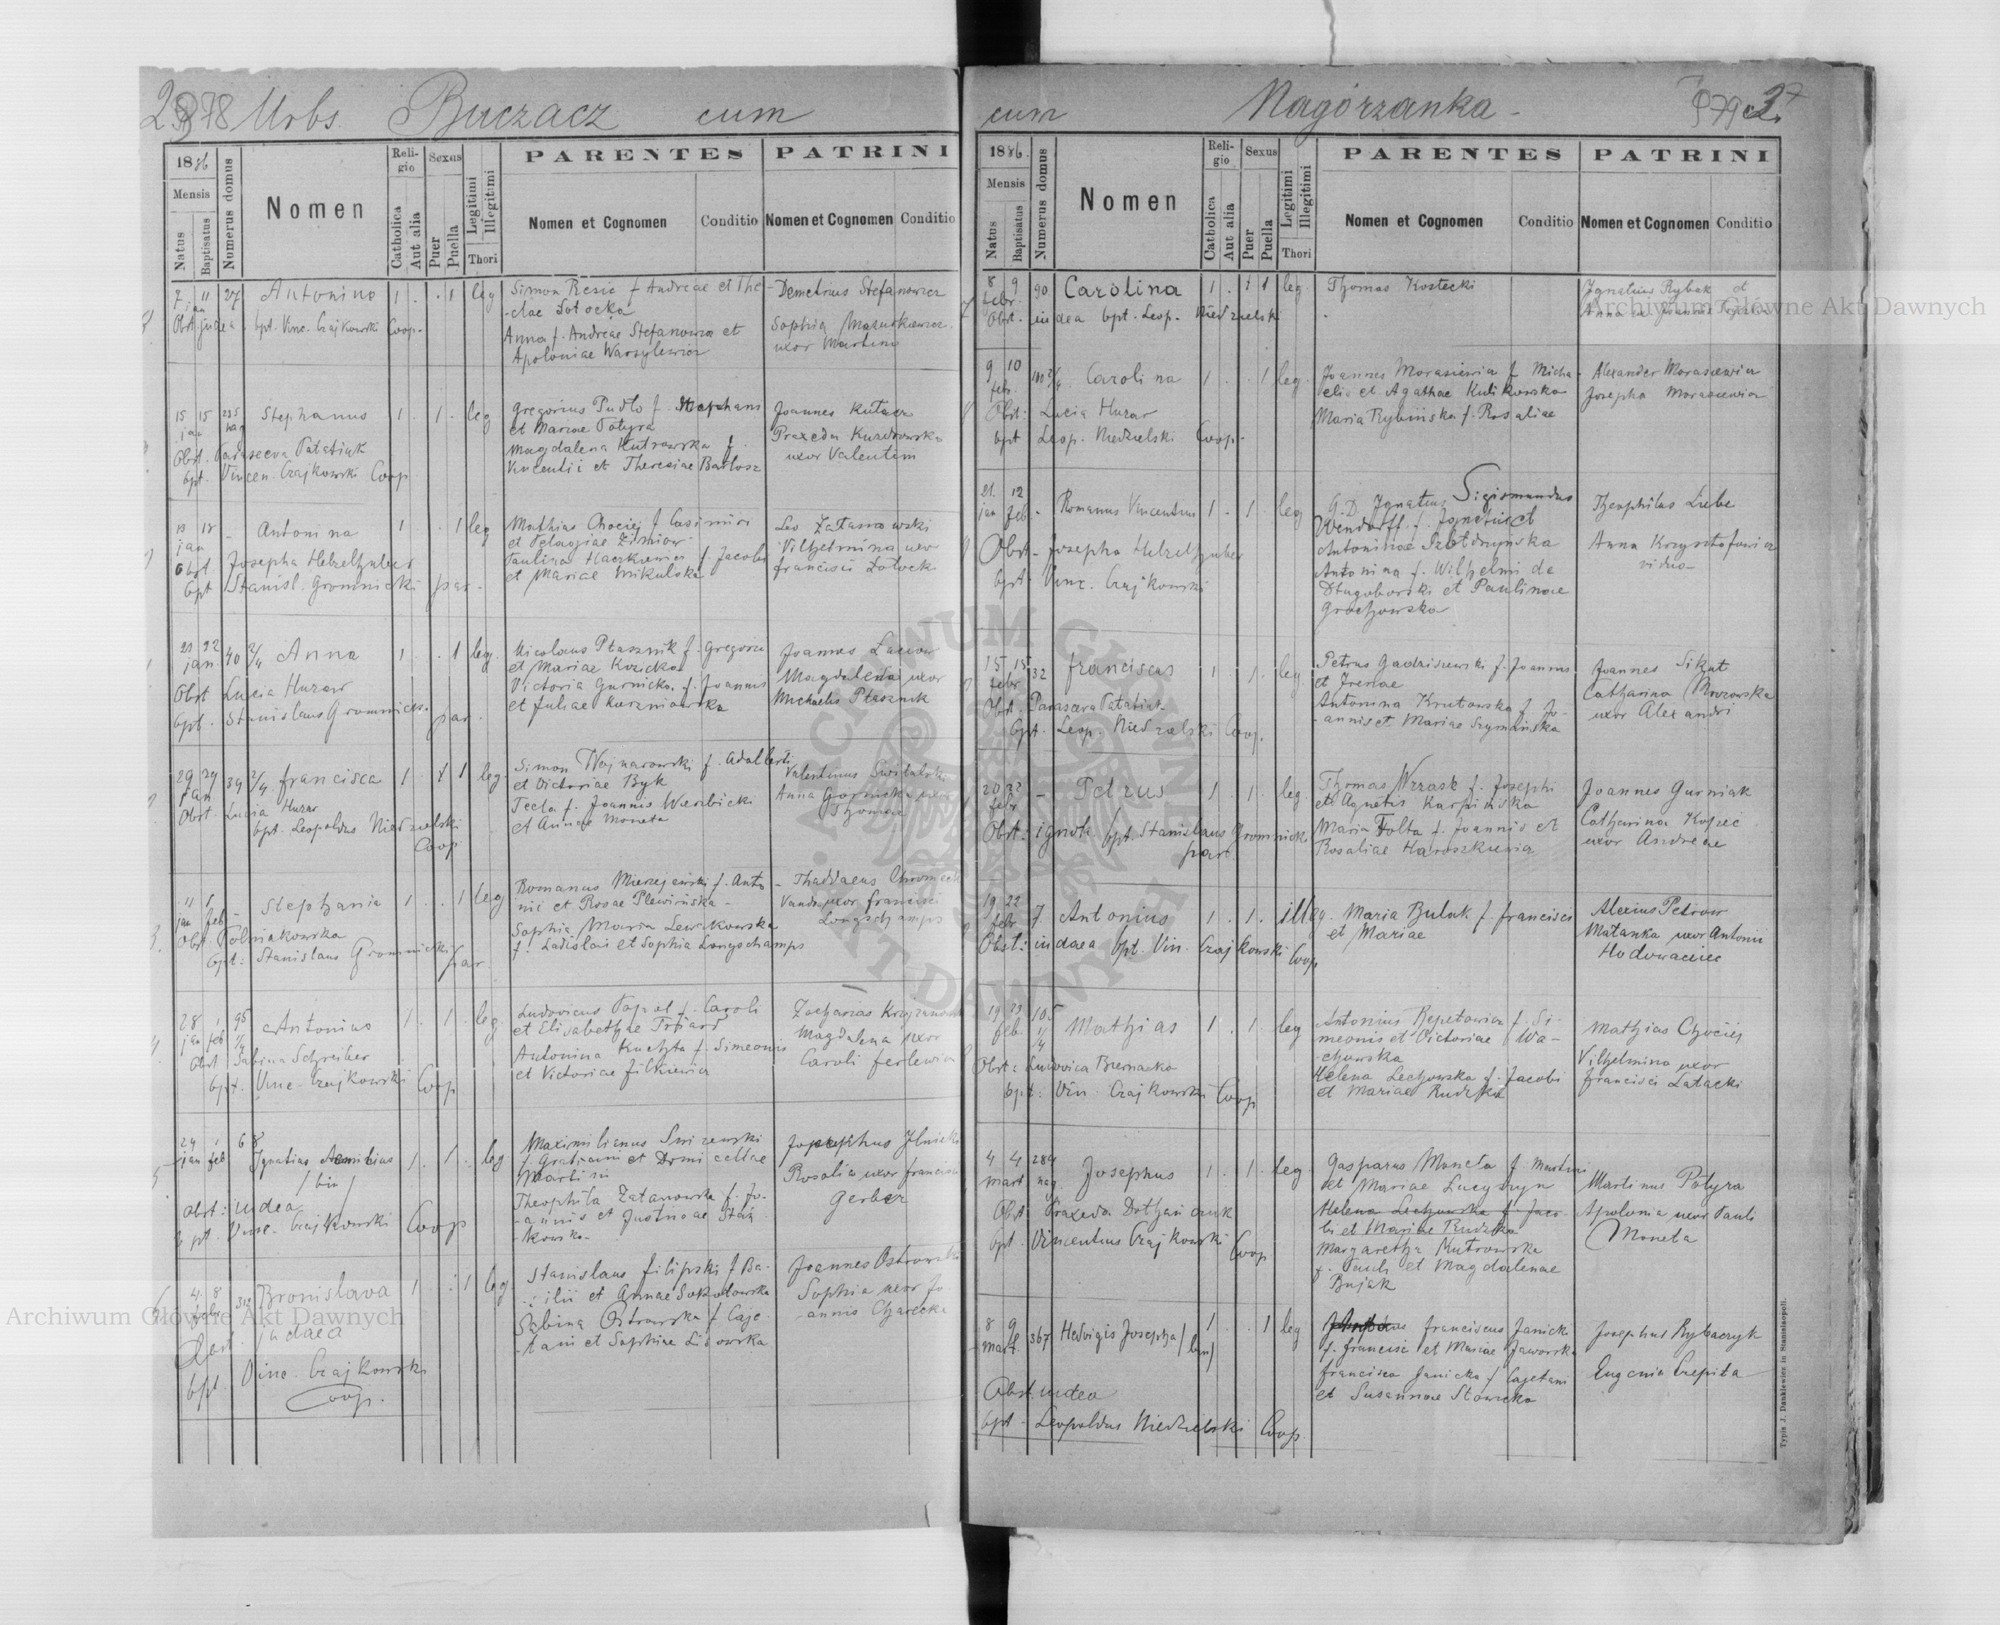 Urbs Buczacz cum
1886
Mensis
Natus
Baptisatus
Numerus domus
Nomen
Religio
Catholica
Aut alia
Sexus
Puer
Puella
Legitimi
Illegitimi
Thori
PARENTES
Nomen et Cognomen
Conditio
PATRINI
Nomen et Cognomen
Conditio
7 11 27
jan
Antonina
1 . . 1 leg
Simon Resie f. Andreae et The-
clae Sotocka
Anna f. Andreae Stefanowicz et
Apoloniae Warsylewicz
Demetrius Stefanowicz
Sophia Maruskiewicz
uxor Martini
Obst. judea bpt. Vinc. Czajkowski Coop.
15 15 235
jan nag
Stephanus
1 . 1 . leg
Gregorius Pudlo f. Stephani
et Mariae Potyra
Magdalena Kutrowska f.
Vincentii et Theresiae Bartosz
Joannes Kutacz
Praxeda Kuzdrowska
uxor Valentini
Obst. Parasceva Patatiuk
bpt. Vincen. Czajkowski Coop
13 18
jan
Antonina
1 . . 1 leg
Mathias Chociej f. Casimiri
et Pelagiae Zimiow
Paulina Haczkiewicz f. Jacobi
et Mariae Mikulska
Leo Zatanowski
Vilhelmina uxor
Francisci Lotock
Obst Josepha Helzelhuber
bpt Stanisl. Gromnicki par.
21 22 40 2/4
jan
Anna
1 . . 1 leg
Nicolaus Ptasznik f. Gregorii
et Mariae Kozicka
Victoria Gurnicka f. Joannis
et Juliae Kuzniowska
Joannes Lasow
Magdalena uxor
Michaelis Ptasznik
Obst Lucia Huzar
bpt. Stanislaus Gromnicki par.
29 29 39 2/4
jan
Francisca
1 . 1 1 leg.
Simon Wojnarowski f. Adalberti
et Victoriae Byk
Tecla f. Joannis Wierzbicki
et Annae Moneta
Valentinus Swistalski
Anna Gorninska uxor
Thomae
Obst. Lucia Huzar
bpt. Leopoldus Niedzielski
Coop
11 1
jan feb
Stephania
1 . . 1 leg
Romanus Mierzejewski f. Anto-
nii et Rosae Plewińska
Sophia Maria Lewickowska
f. Ladislai et Sophia Longschamps
Thaddaeus Chromcek
Vanda uxor Francisci
Longschamps
Obst. Polniakowska
bpt: Stanislaus Gromnicki Par
28 1 95
jan feb 1/4
Antonius
1 . 1 . leg
Ludovicus Papal f. Caroli
et Elisabethae Triard
Antonina Kuchta f. Simeonis
et Victoriae Filkiewicz
Zacharias Krzyzanowski
Magdalena uxor
Caroli Ferlewicz
Obst Sabina Schreiber
bpt. Vinc. Czajkowski Coop
24 1 68
jan feb
Ignatius Aemilius
/bin/
1 . 1 . leg
Maximilianus Swizewski
f. Gratiani et Domicellae
Martini
Theophila Zatanowska f. Jo-
annis et Justinae Stań-
kowska
Josephus Ilnicki
Rosalia uxor Francisci
Gerber
Obst: iudea
bpt. Vinc. Czajkowski Coop
4 8 312
febr
Bronislava
1 . . 1 leg
Stanislaus Filipski f. Ba-
silii et Annae Sokolowska
Sabina Ostrowska f. Caje-
tani et Sophiae Lisowska
Joannes Ostrowski
Sophia uxor Jo-
annis Charecka
Obst. judaea
bpt. Vinc. Czajkowski
Coop.
cum Nagórzanka
1886
Mensis
Natus
Baptisatus
Numerus domus
Nomen
Religio
Catholica
Aut alia
Sexus
Puer
Puella
Legitimi
Illegitimi
Thori
PARENTES
Nomen et Cognomen
Conditio
PATRINI
Nomen et Cognomen
Conditio
8 9 90
febr.
Carolina
1 . 1 1 leg.
Thomas Kostecki
Ignatius Rybak et
Obst. iudea bpt. Leop. Niedzielski
9 10
febr.
Carolina
1 . . 1 leg
Joannes Morasiewicz f. Micha-
elis et Agathae Kulikowska
Maria Rybińska f. Rosaliae
Alexander Morasiewicz
Josepha Morasiewicz
Obst: Lucia Huzar
bpt Leop. Niedzielski Coop.
21. 12
jan feb
Romanus Vincentius
1 . 1 . leg
G.D. Ignatius Sigismundus
Wendorff f. Ignatii et
Antoninae Szotdrzynska
Antonina f. Wilhelmi de
Dlugoborski et Paulinae
Grochowska
Theophilus Liebe
Anna Krzysztofowicz
vidua
Obst. Josepha Helzelhuber
bpt. Vinc. Czajkowski
15 15 32
febr
Franciscus
1 . 1 . leg
Petrus Gadziszewski f. Joannis
et Irenae
Antonina Krutowska f. Jo-
annis et Mariae Szymańska
Joannes Sikut
Catharina Mrozowska
uxor Alexandri
Obst. Parasceva Patatiuk
bpt. Leop. Niedzielski Coop.
20 22
febr
Petrus
1 . 1 . leg
Thomas Wrzask f. Josephi
et Agnetis Karpińska
Maria Folta f. Joannis et
Rosaliae Haroszkiewicz
Joannes Gurniak
Catharina Kopeć
uxor Andreae
Obst: ignota bpt. Stanislaus Gromnicki
par.
19 22 7.
febr
Antonius
1 . 1 . illeg.
Maria Bulak f. Francisci
et Mariae
Alexius Petrow
Matanka uxor Antonii
Hodowaniec
Obst: iudaea bpt. Vin. Czajkowski Coop
19 23 105
feb 1/4
Mathias
1 . 1 . leg
Antonius Repetowicz f. Si-
meonis et Victoriae Wa-
chowska
Helena Lechowska f. Jacobi
et Mariae Rudzka
Mathias Chociej
Vilhelmina uxor
Francisci Latacki
Obst: Ludovica Biernacka
bpt: Vin. Czajkowski Coop
4 4 284
mart nag.
Josephus
1 . 1 . leg
Gasparus Moneta f. Martini
et Mariae Lucyszyn
Helena Lechowska f. Jaco-
bi et Mariae Rudzka
Margaretha Kutrowska
f. Pauli et Magdalenae
Bujak
Martinus Potyra
Apolonia uxor Pauli
Moneta
Obst. Praxeda Dothanczuk
bpt. Vincentius Czajkowski Coop
8 9 367
mart.
Hedvigis Josepha /bin/
1 . . 1 leg
Franciscus Janicki
f. Francisci et Mariae Jaworska
Francisca Janicka f. Cajetani
et Susannae Slowicka
Josephus Rybaczyk
Eugenia Czepita
Obst. iudea
bpt. Leopoldus Niedzielski Coop.
Typis J. Dankiewicz in Stanislaopoli.
Archiwum Główne Akt Dawnych
Archiwum Główne Akt Dawnych
ARCHIWUM GŁÓWNE AKT DAWNYCH